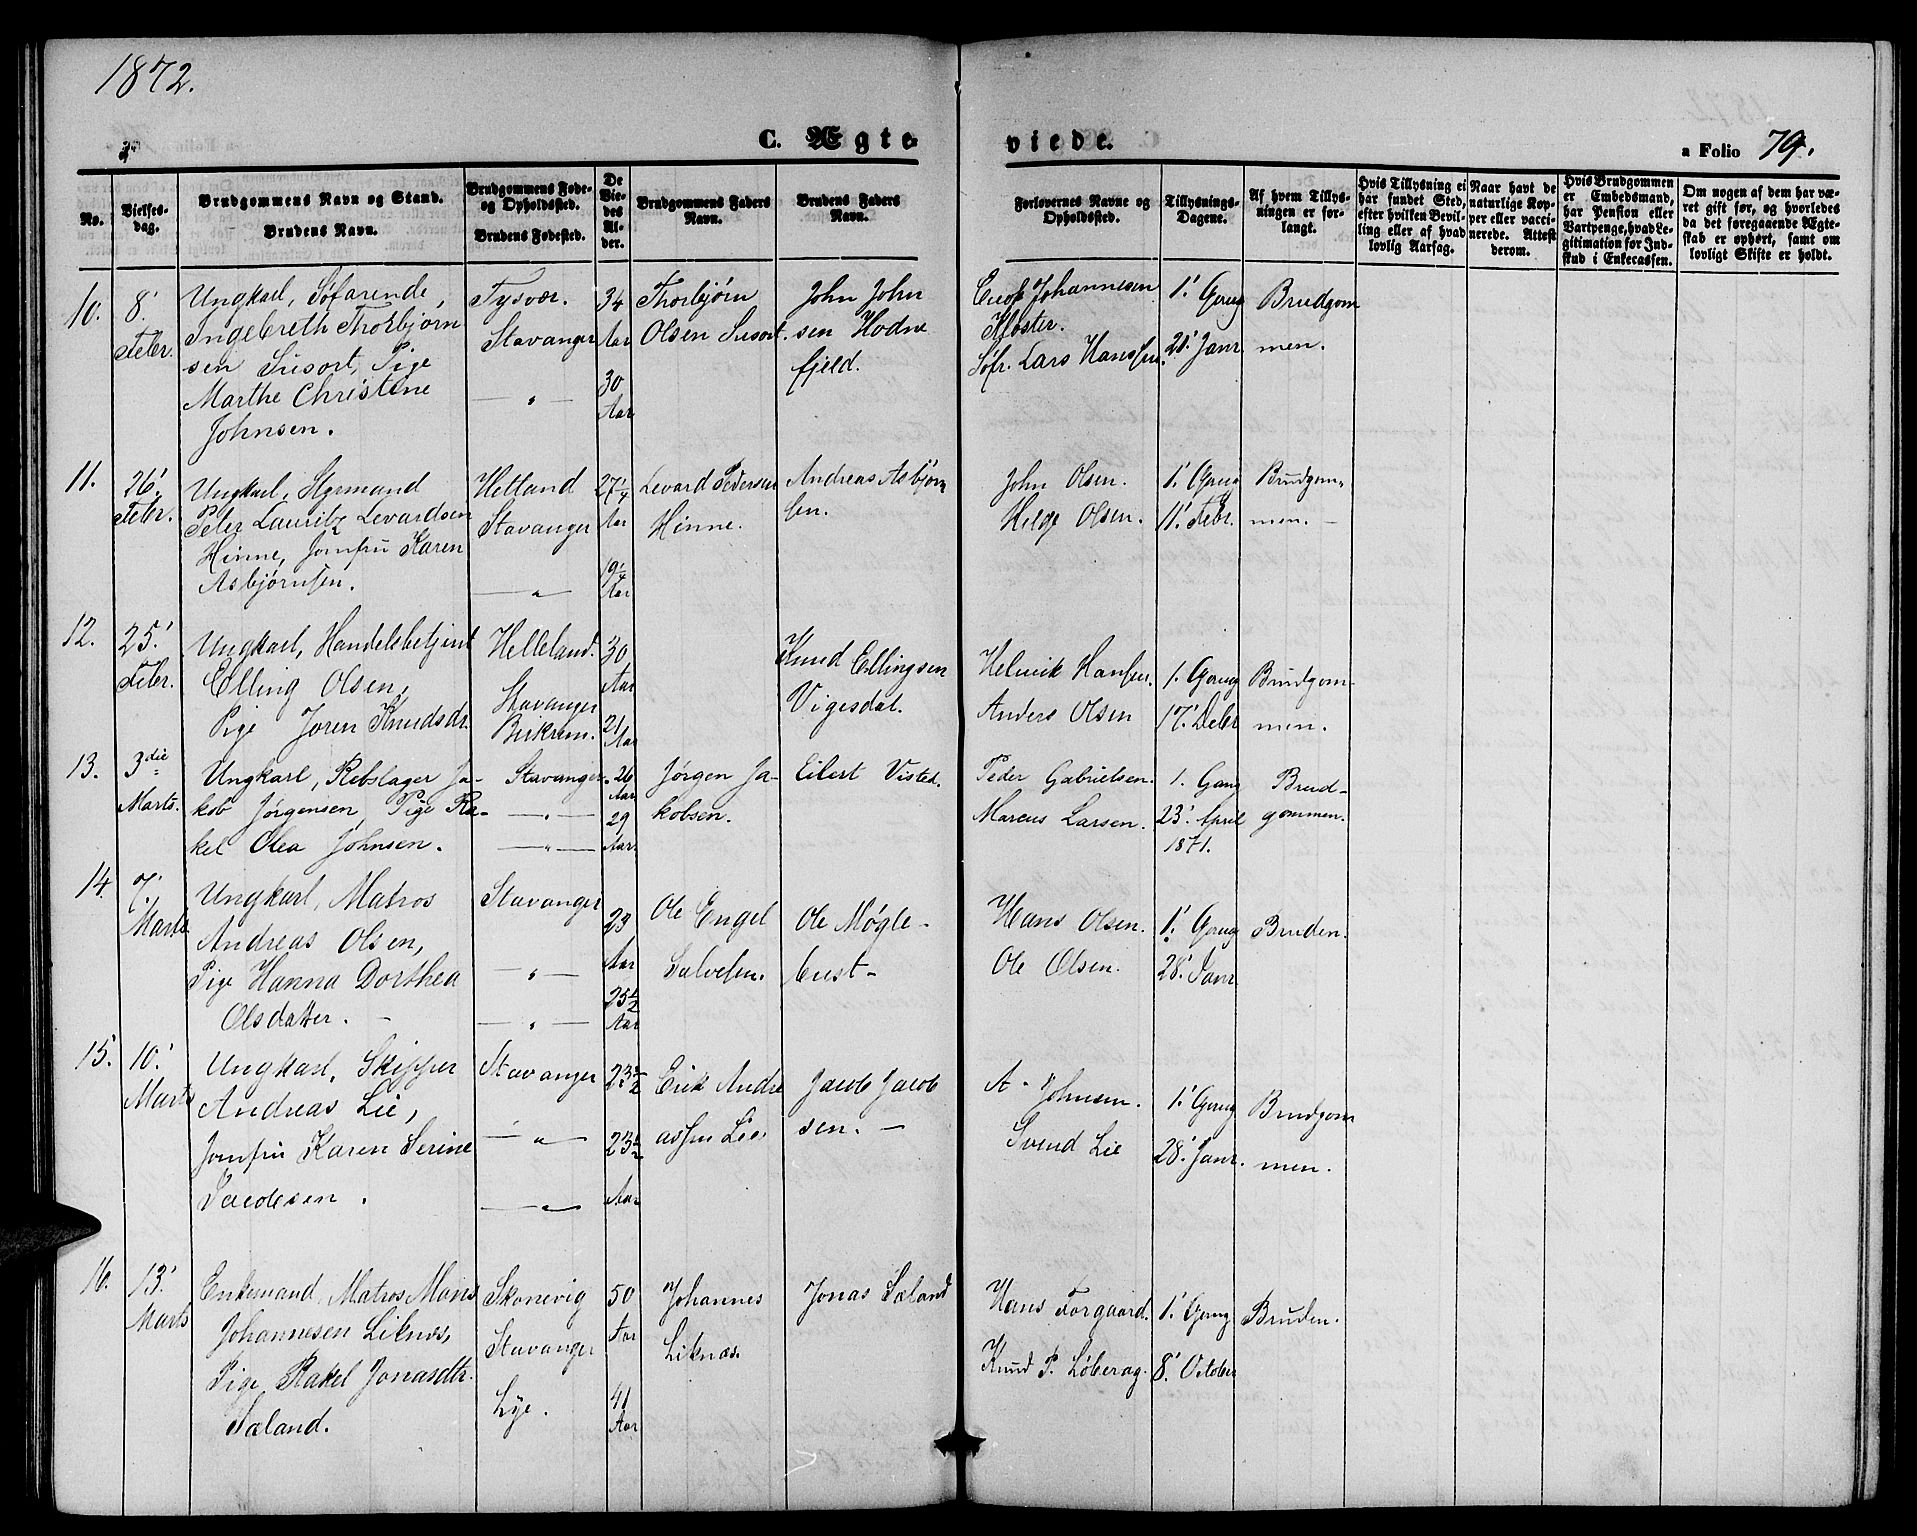 1872.
C. Ægte
viede.
a Folio 79.
No.
Vielses-
dag.
Brudgommens Navn og Stand.
Brudens Navn.
Brudgommens Føde-
og Opholdssted.
Brudens Fødested.
De
Vie-
des
Al-
der.
Brudgommens Faders
Navn.
Brudens Faders
Navn.
Forlovernes Navne og
Opholdssted.
Tillysnings-
Dagene.
Af hvem Tillys-
ningen er for-
langt.
Hvis Tillysning ei
har fundet Sted,
efter hvilken Bevil-
ling eller af hvad
lovlig Aarsag.
Naar havt de
naturlige Kop-
per eller vacci-
nerede. Attest
derom.
Hvis Brudgommen
er Embedsmand,
har Pension eller
Vartpenge, hvad Le-
gitimation for Ind-
skud i Enkecassen.
Om nogen af dem har væ-
ret gift før, og hvorledes
da det foregaaende Ægte-
skab er ophørt, samt om
lovligt Skifte er holdt.
10.
8'
Febr.
Ungkarl, Søfarende,
Ingebreth Thorbjørn
sen Susort, Pige
Marthe Christine
Johnsen.
Tysvær.
Stavanger
— " —
34
Aar
30
Aar
Thorbjørn
Olsen Susort.
John John
sen Hodne
fjeld.
Johannesen
Kloster.
Søfr. Lars Hansen.
1' Gang
21' Janr.
Brudgom
men.
11.
26'
Febr.
Ungkarl, Styrmand
Peter Lauritz Levardsen
Hinne, Jomfru Karen
Asbjørnsen.
Hetland
Stavanger
— " —
27 1/4
Aar
19 1/4
Aar
Levard Pedersen
Hinne.
Andreas Asbjørn
sen.
John Olsen.
Helge Olsen.
1' Gang
11' Febr.
Brudgom-
men. —
12.
25'
Febr.
Ungkarl, Handelsbetjent
Elling Olsen,
Pige Joren Knudsdr.
Helleland.
Stavanger
Birkrem.
30
Aar
21
Aar
Knud Ellingsen
Vigesdal.
Helmik Hansen.
Anders Olsen
1' Gang
17'
Brudgom-
men.
13.
3die
Marts.
Ungkarl, Rebslager Ja-
kob Jørgensen, Pige Ra-
kel Olea Johnsen.
Stavanger.
— " —
— " —
26
Aar
29
Aar
Jørgen Ja-
kobsen.
Eilert Visted.
Peder Gabrielsen.
Marcus Larsen.
1. Gang
23' April
1871.
Brud-
gommen.
14.
7'
Marts
Ungkarl, Matros
Andreas Olsen,
Pige Hanna Dorthea
Olsdatter. —
Stavanger
— " —
— " —
23
Aar
25 1/2
Aar
Ole Engel
Salvesen.
Ole Møgle-
bust —
Hans Olsen.
Ole Olsen.
1' Gang
28' Janr
Bruden.
15.
10'
Marts
Ungkarl, Skipper
Andreas Lie,
Jomfru Karen Serine
Jacobsen.
Stavanger
— " —
— " —
23 1/2
23 1/2
Aar
Erik Andre
assen Lie.
Jacob Jacob
sen. —
A. Johnsen.
Svend Lie
1' Gang
28' Janr.
Brudgom
men.
16.
13'
Marts
Enkemand, Matros Mons
Johannesen Liknæs,
Pige Rakel Jonasdtr.
Sæland.
Skonevig
Stavanger
Lye.
50
Aar
41
Aar
Johannes
Liknæs.
Jonas Sæland
Hans Torgaard.
Knud P. Løberag.
1' Gang
8' October
Bruden.